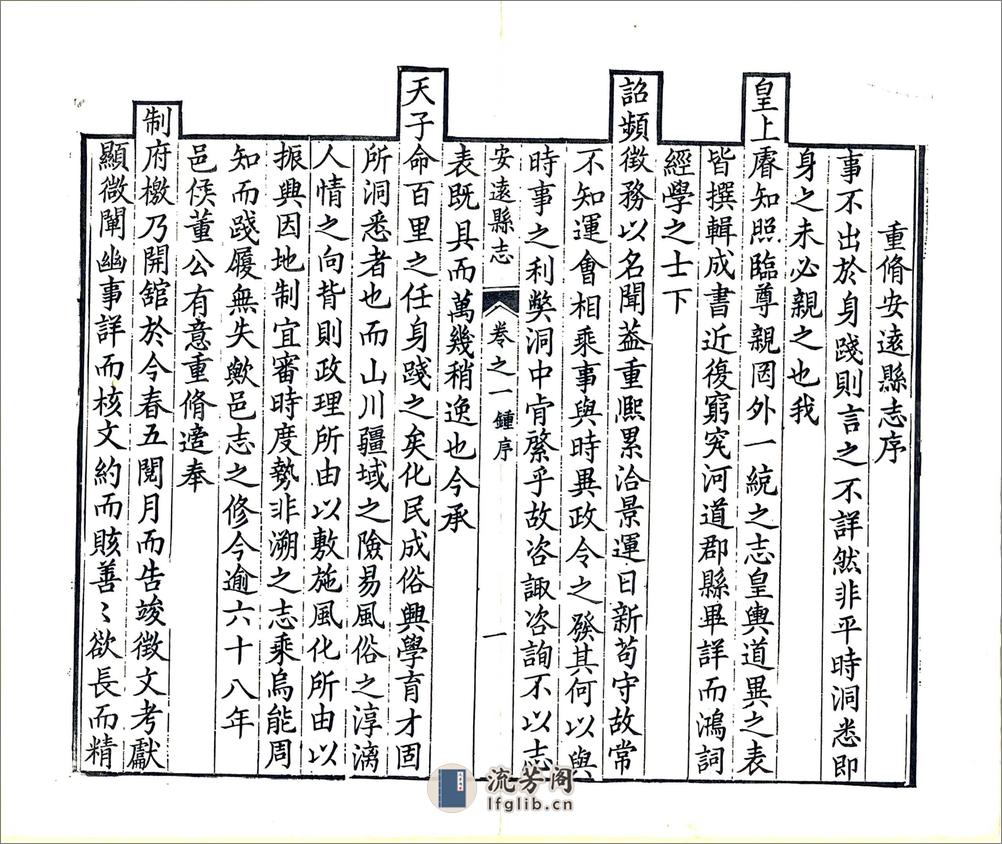 重脩安遠縣志序
事不出於身踐則言之不詳然非平時洞悉即
身之未必親之也我
皇上睿知照臨尊親罔外一統之志皇輿道里之表
皆撰輯成書近復窮究河道郡縣畢詳而鴻詞
經學之士下
詔頻徵務以名聞葢重熈累洽景運日新苟守故常
不知運會相乘事與時異政令之發其何以與
時事之利獘洞中肯綮乎故咨諏咨詢不以志
安遠縣志
卷之一鍾序
一
表既具而萬幾稍逸也今承
天子命百里之任身踐之矣化民成俗興學育才固
所洞悉者也而山川疆域之險易風俗之淳漓
人情之向背則政理所由以敷施風化所由以
振興因地制宜審時度勢非溯之志乘烏能周
知而踐履無失歟邑志之修今逾六十八年
邑侯董公有意重脩適奉
制府檄乃開舘於今春五閱月而告竣徵文考獻
顯微闡幽事詳而核文約而賅善〻欲長而精
流芳阁
lfglib.cn